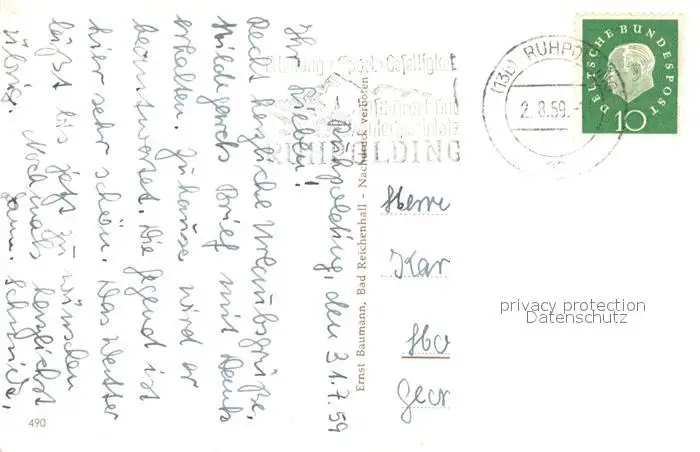 Ruhpolding, den 31.7.59
Ihr Lieben!
Recht herzliche Urlaubsgrüße.
Hildegards Brief mit Dank
erhalten. Zuhause wird er
beantwortet. Die Gegend ist
hier sehr schön. Das Wetter
läßt bis jetzt zu wünschen
übrig. Nochmals herzlichst
Fam. Schmidt,
490
Ernst Baumann, Bad Reichenhall - Nachdruck verboten
Sport Geselligkeit
RUHPOLDING
(13b) RUHPOLDING
2.8.59.-
DEUTSCHE BUNDESPOST
10
Herrn
Kar
Ho
Geor
privacy protection
Datenschutz